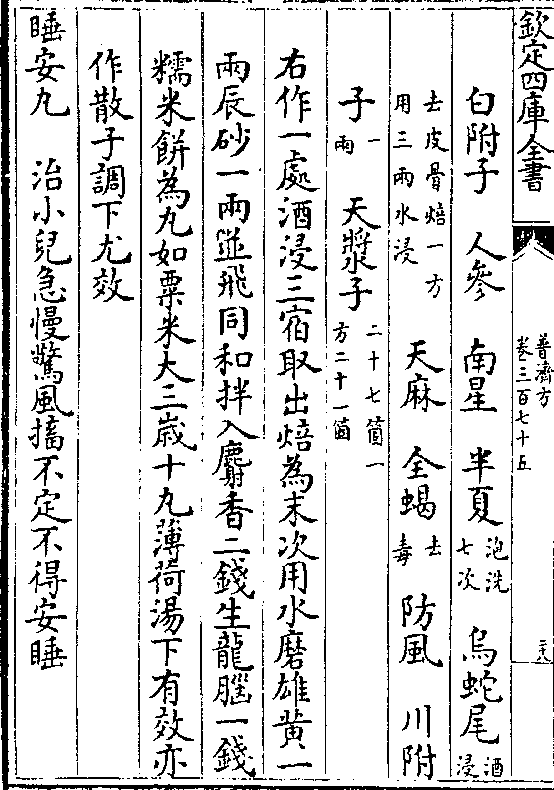 欽定四庫全書
普濟方
卷三百七十五
二十八
白附子 人參 南星 半夏泡洗七次 烏蛇尾酒浸
去皮骨焙一方用三兩水浸 天麻 全蝎去毒 防風 川附
子一兩 天漿子二十七箇一方二十一箇
右作一處酒浸三宿取出焙為末次用水磨雄黄一
兩辰砂一兩並飛同和拌入麝香二錢生龍腦一錢
糯米餅為丸如粟米大三歲十丸薄荷湯下有效亦
作散子調下尤效
睡安丸 治小兒急慢驚風搐不定不得安睡